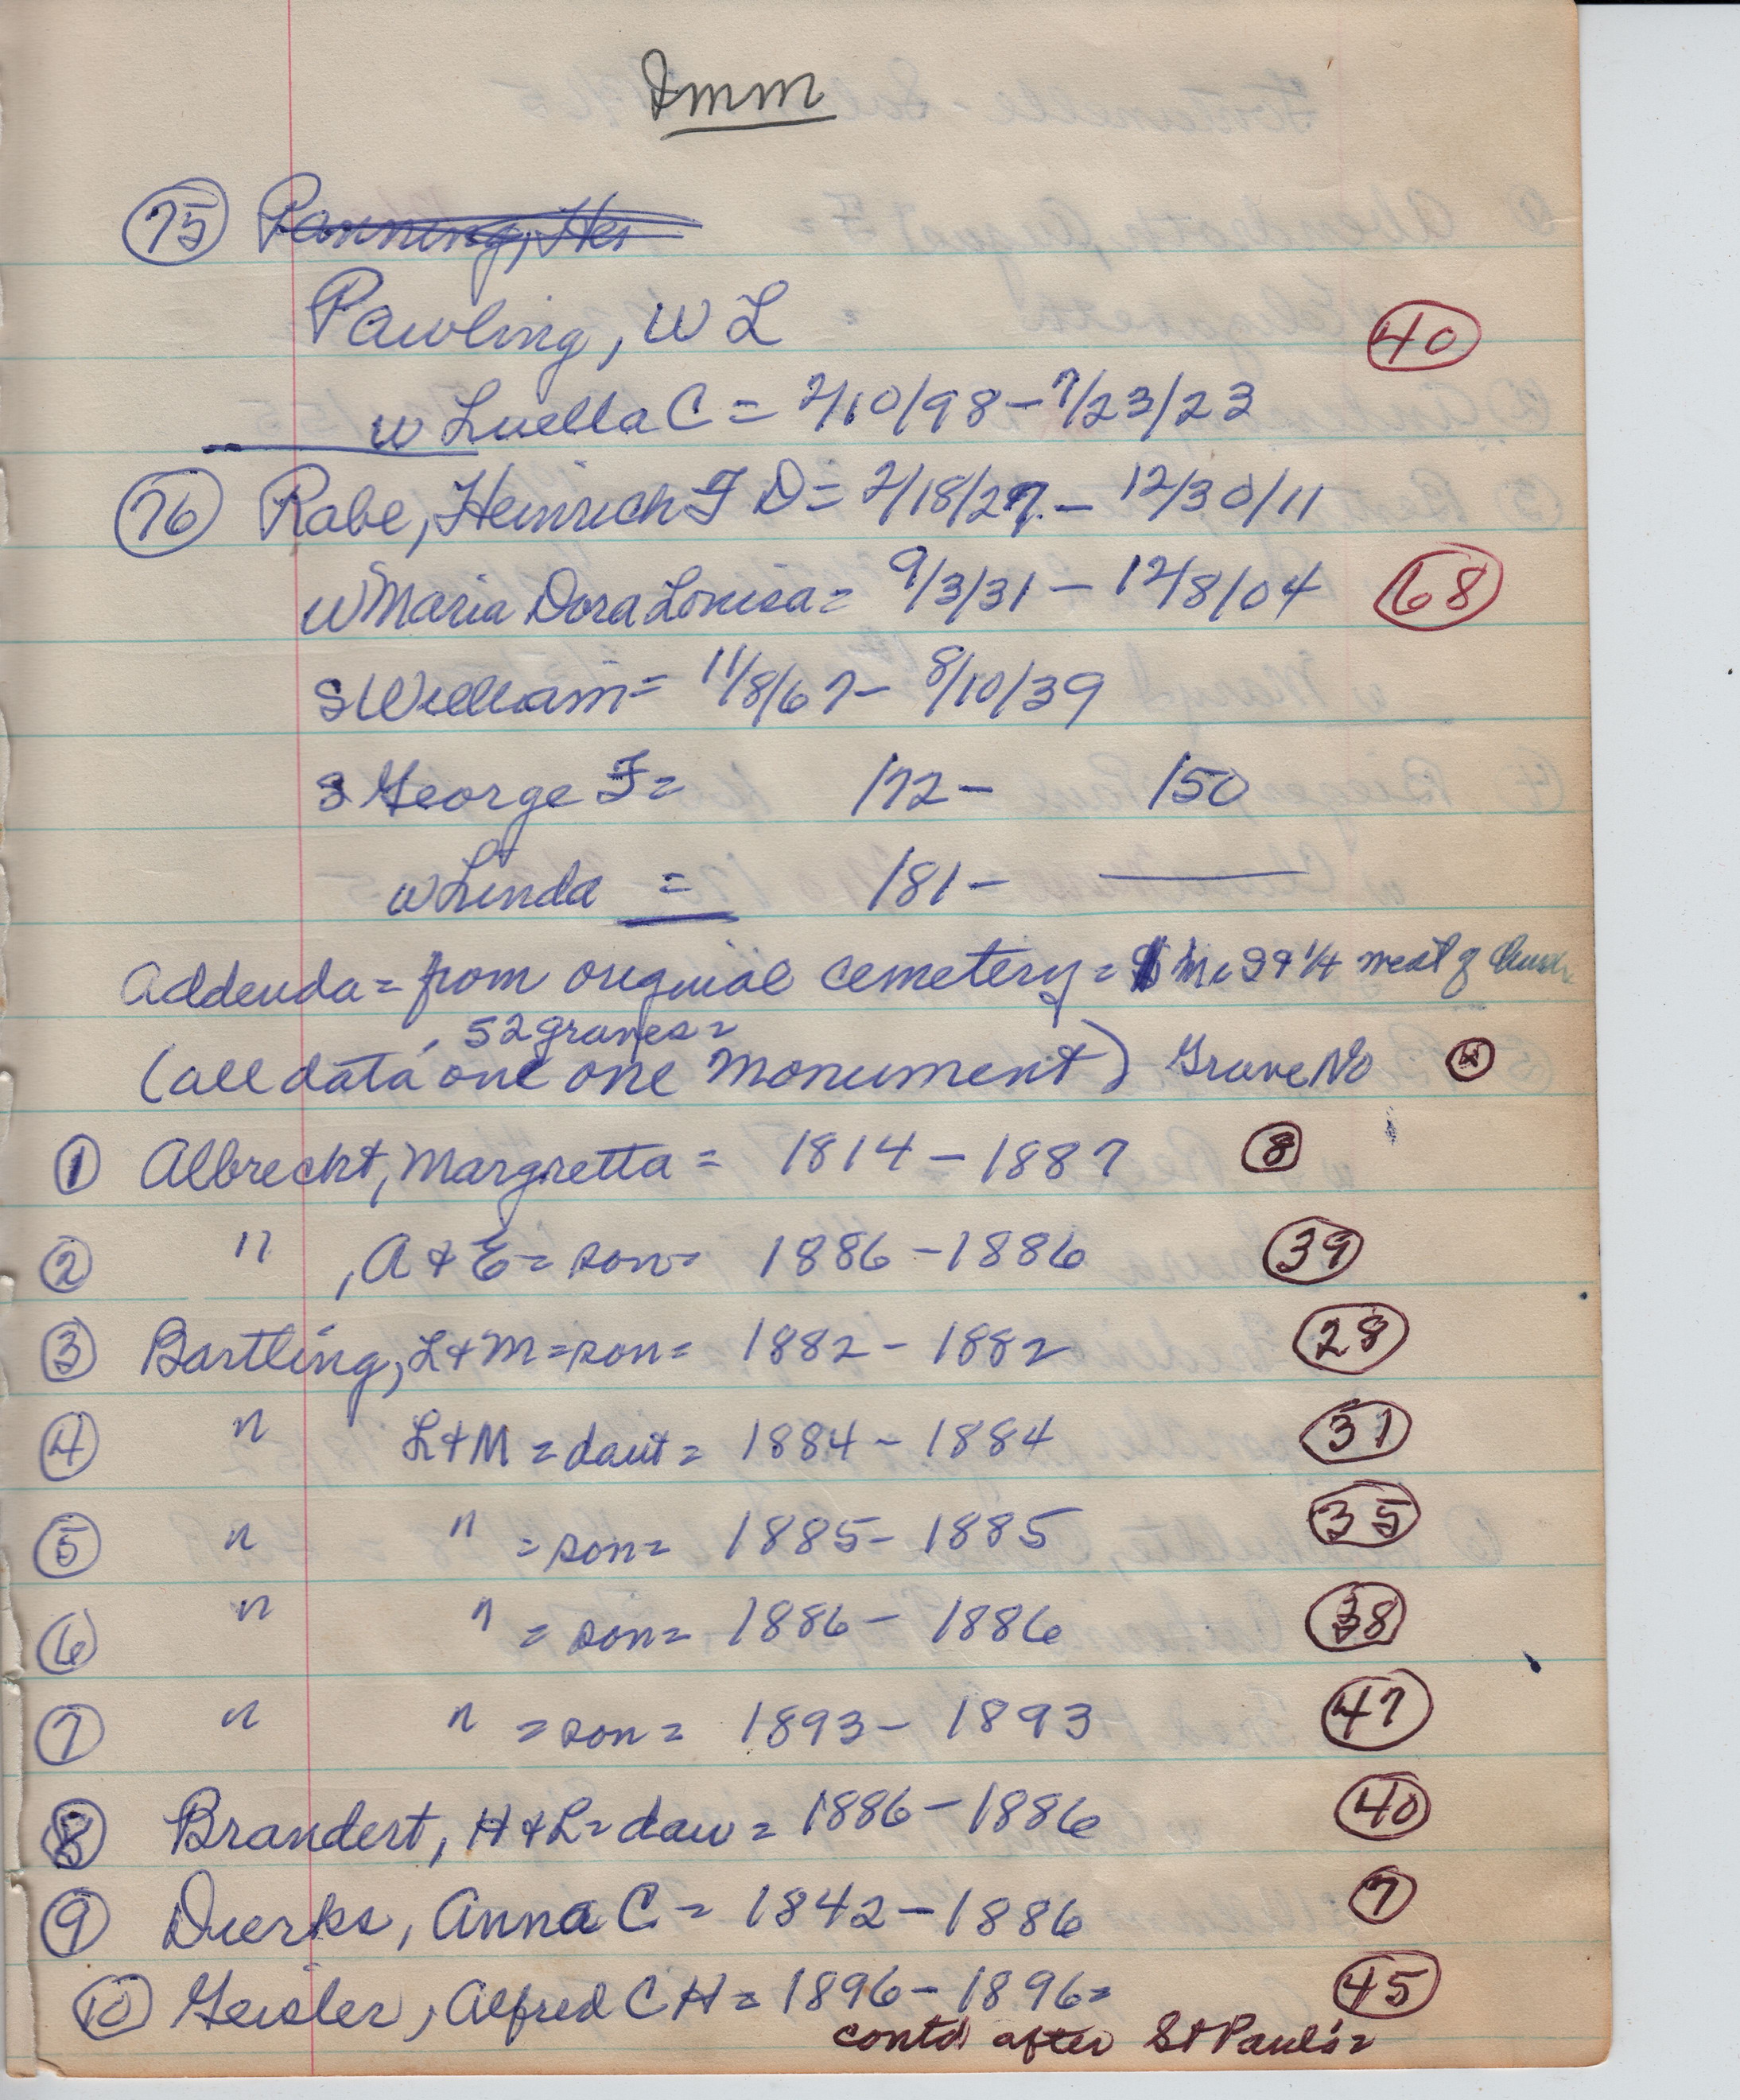 Imm
75 Panning, Her
Pawling, W L 40
w Luella C = 2/10/98 - 7/23/23
76 Rabe, Heinrich F D = 2/18/27 - 12/30/11
w Maria Dora Louisa = 9/3/31 - 12/8/04 68
s William = 11/8/67 - 8/10/39
s George F = /72 - /50
w Linda = /81 - ———
Addenda = from original cemetery = 1/4 west of
, 52 graves =
(all data one one monument) Grave No
1 Albrecht, Margretta = 1814 - 1887 8
2 " , A + E = son = 1886 - 1886 39
3 Bartling, L + M = son = 1882 - 1882 28
4 " L + M = daut = 1884 - 1884 31
5 " " = son = 1885 - 1885 35
6 " " = son = 1886 - 1886 38
7 " " = son = 1893 - 1893 47
8 Brandert, H + L = dau = 1886 - 1886 40
9 Dierks, Anna C = 1842 - 1886 7
10 Geisler, Alfred C H = 1896 - 1896 = 45
contd after St Paul's =